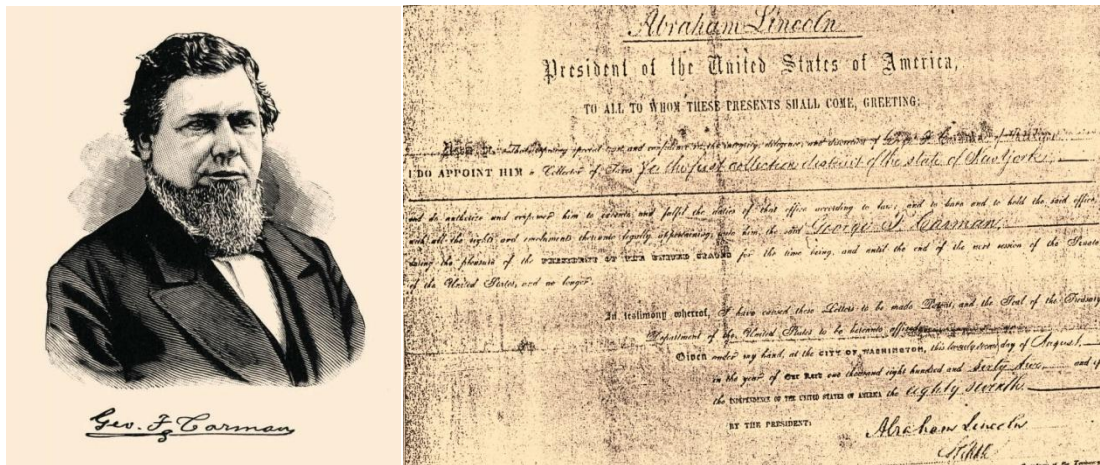 Geo. F. Carman
Abraham Lincoln
President of the United States of America,
TO ALL TO WHOM THESE PRESENTS SHALL COME, GREETING:
special trust and confidence in the integrity, diligence, and discretion of
I DO APPOINT HIM Collector of Taxes for the first collection district of the state of New York.
and do authorize and empower him to execute and fulfil the duties of that office according to law; and to have and to hold the said office,
with all the rights and emoluments thereunto legally appertaining, unto him, the said George F. Carman,
during the pleasure of the PRESIDENT OF THE UNITED STATES for the time being, and until the end of the next session of the Senate
of the United States, and no longer.
In testimony whereof, I have caused these Letters to be made Patent, and the Seal of the Treasury
Department of the United States to be hereunto
Given under my hand, at the CITY OF WASHINGTON, this day of August,
in the year of OUR LORD one thousand eight hundred and sixty two and of
the INDEPENDENCE OF THE UNITED STATES OF AMERICA the eighty seventh.
BY THE PRESIDENT:
Abraham Lincoln